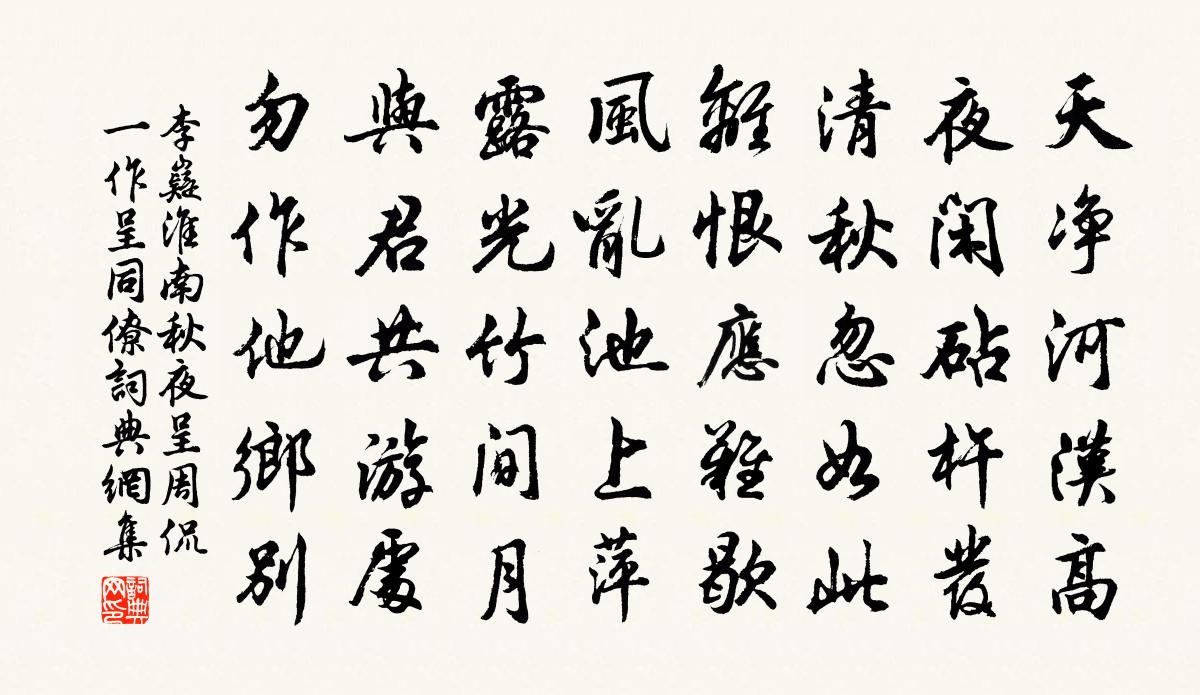 天净河漢高
夜閑砧杵發
清秋忽如此
離恨應難歇
風亂池上萍
露光竹間月
與君共游處
勿作他鄉別
李嶷淮南秋夜呈周侃
一作呈同僚詞典網集
詞典
网印